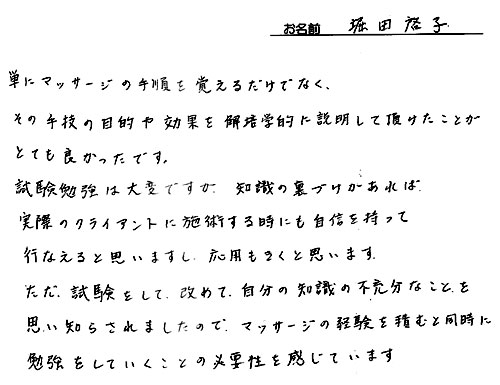 お名前 堀田啓子
単にマッサージの手順を覚えるだけでなく、
その手技の目的や効果を解培学的に説明して頂けたことが
とても良かったです。
試験勉強は大変ですが、知識の裏づけがあれば、
実際のクライアントに施術する時にも自信を持って
行なえると思いますし、応用もきくと思います。
ただ、試験をして、改めて、自分の知識の不充分なことを
思い知らされましたので、マッサージの経験を積むと同時に
勉強をしていくことの必要性を感じています